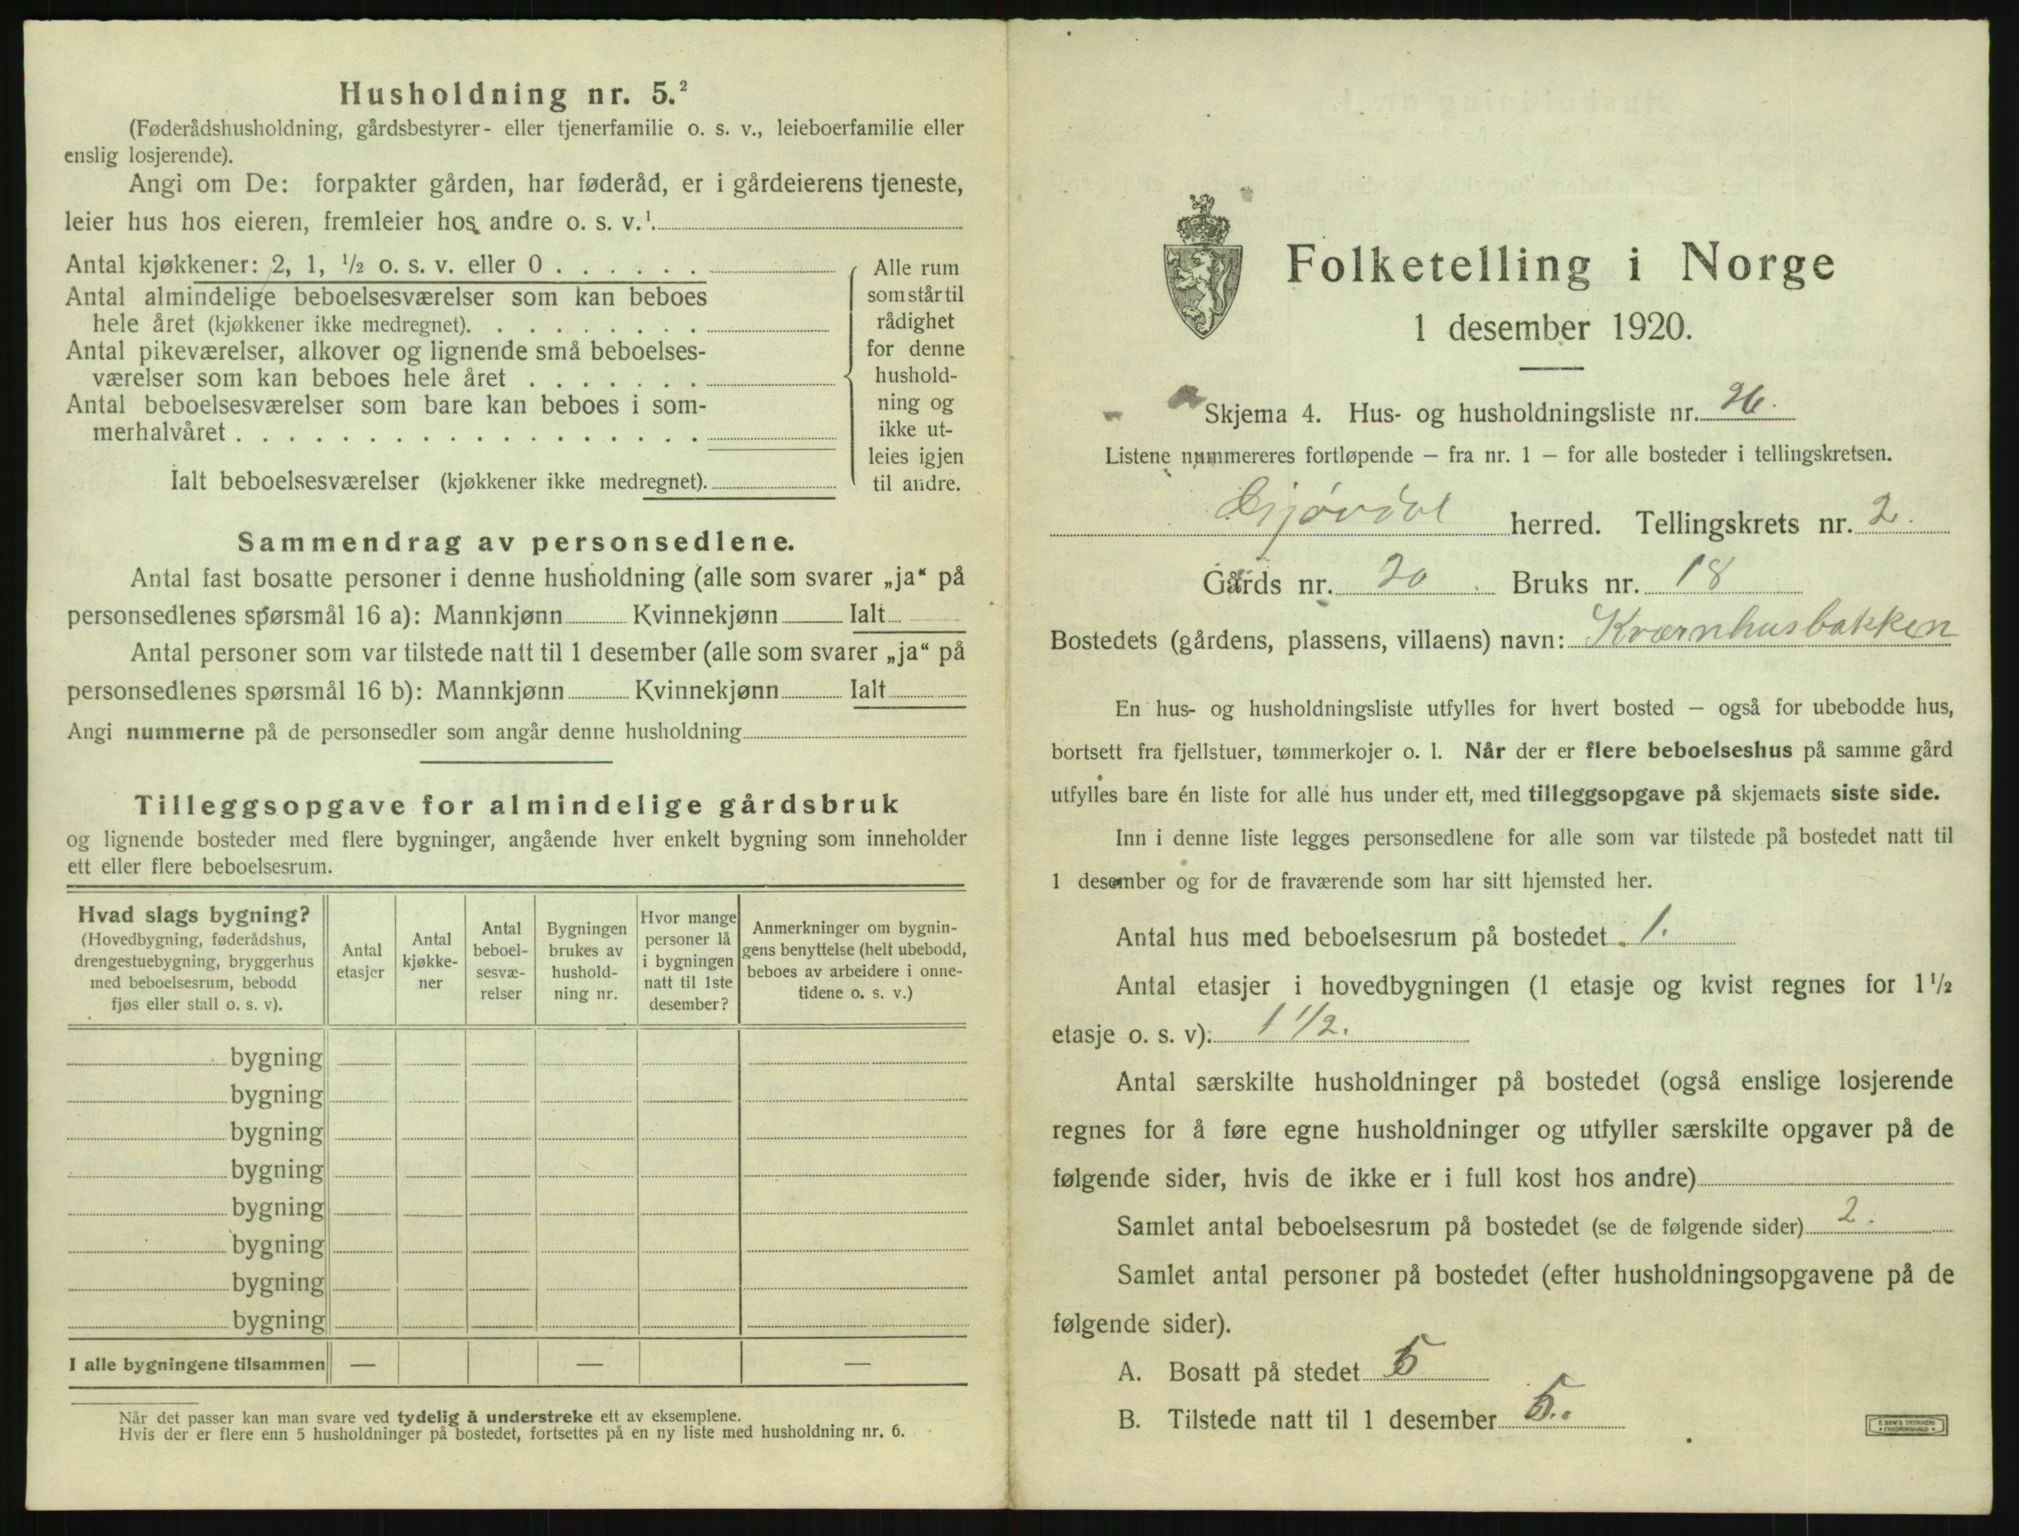 Husholdning nr. 5.²
(Føderådshusholdning, gårdsbestyrer- eller tjenerfamilie o. s. v., leieboerfamilie eller
enslig losjerende).
Angi om De: forpakter gården, har føderåd, er i gårdeierens tjeneste,
leier hus hos eieren, fremleier hos andre o. s. v.¹
Antal kjøkkener: 2, 1, ½ o. s. v. eller 0 . . . . . .
Antal almindelige beboelsesværelser som kan beboes
hele året (kjøkkener ikke medregnet). . . . . . . . .
Antal pikeværelser, alkover og lignende små beboelses-
værelser som kan beboes hele året . . . . . . .
Antal beboelsesværelser som bare kan beboes i som-
merhalvåret . . . . . . . . . . . . . . . . . .
Ialt beboelsesværelser (kjøkkener ikke medregnet).
Alle rum
som står til
rådighet
for denne
hushold-
ning og
ikke ut-
leies igjen
til andre.
Sammendrag av personsedlene.
Antal fast bosatte personer i denne husholdning (alle som svarer „ja“ på
personsedlenes spørsmål 16 a): Mannkjønn Kvinnekjønn Ialt
Antal personer som var tilstede natt til 1 desember (alle som svarer „ja“ på
personsedlenes spørsmål 16 b): Mannkjønn Kvinnekjønn Ialt
Angi nummerne på de personsedler som angår denne husholdning
Tilleggsopgave for almindelige gårdsbruk
og lignende bosteder med flere bygninger, angående hver enkelt bygning som inneholder
ett eller flere beboelsesrum.
Hvad slags bygning?
(Hovedbygning, føderådshus,
drengestuebygning, bryggerhus
med beboelsesrum, bebodd
fjøs eller stall o. s. v).
Antal
etasjer
Antal
kjøkke-
ner
Antal
beboel-
sesvæ-
relser
Bygningen
brukes av
hushold-
ning nr.
Hvor mange
personer lå
i bygningen
natt til 1ste
desember?
Anmerkninger om bygnin-
gens benyttelse (helt ubebodd,
beboes av arbeidere i onne-
tidene o. s. v.)
bygning
bygning
bygning
bygning
bygning
bygning
bygning
bygning
I alle bygningene tilsammen — — —
Når det passer kan man svare ved tydelig å understreke ett av eksemplene.
Hvis der er flere enn 5 husholdninger på bostedet, fortsettes på en ny liste med husholdning nr. 6.
Folketelling i Norge
1 desember 1920.
Skjema 4. Hus- og husholdningsliste nr. 26.
Listene nummereres fortløpende – fra nr. 1 – for alle bosteder i tellingskretsen.
herred. Tellingskrets nr. 2.
Gårds nr. 20. Bruks nr. 18
Bostedets (gårdens, plassens, villaens) navn: Kværnhusbakken
En hus- og husholdningsliste utfylles for hvert bosted – også for ubebodde hus,
bortsett fra fjellstuer, tømmerkojer o. l. Når der er flere beboelseshus på samme gård
utfylles bare én liste for alle hus under ett, med tilleggsopgave på skjemaets siste side.
Inn i denne liste legges personsedlene for alle som var tilstede på bostedet natt til
1 desember og for de fraværende som har sitt hjemsted her.
Antal hus med beboelsesrum på bostedet 1.
Antal etasjer i hovedbygningen (1 etasje og kvist regnes for 1½
etasje o. s. v): 1 1/2.
Antal særskilte husholdninger på bostedet (også enslige losjerende
regnes for å føre egne husholdninger og utfyller særskilte opgaver på de
følgende sider, hvis de ikke er i full kost hos andre)
Samlet antal beboelsesrum på bostedet (se de følgende sider) 2.
Samlet antal personer på bostedet (efter husholdningsopgavene på de
følgende sider).
A. Bosatt på stedet 5
B. Tilstede natt til 1 desember 5.